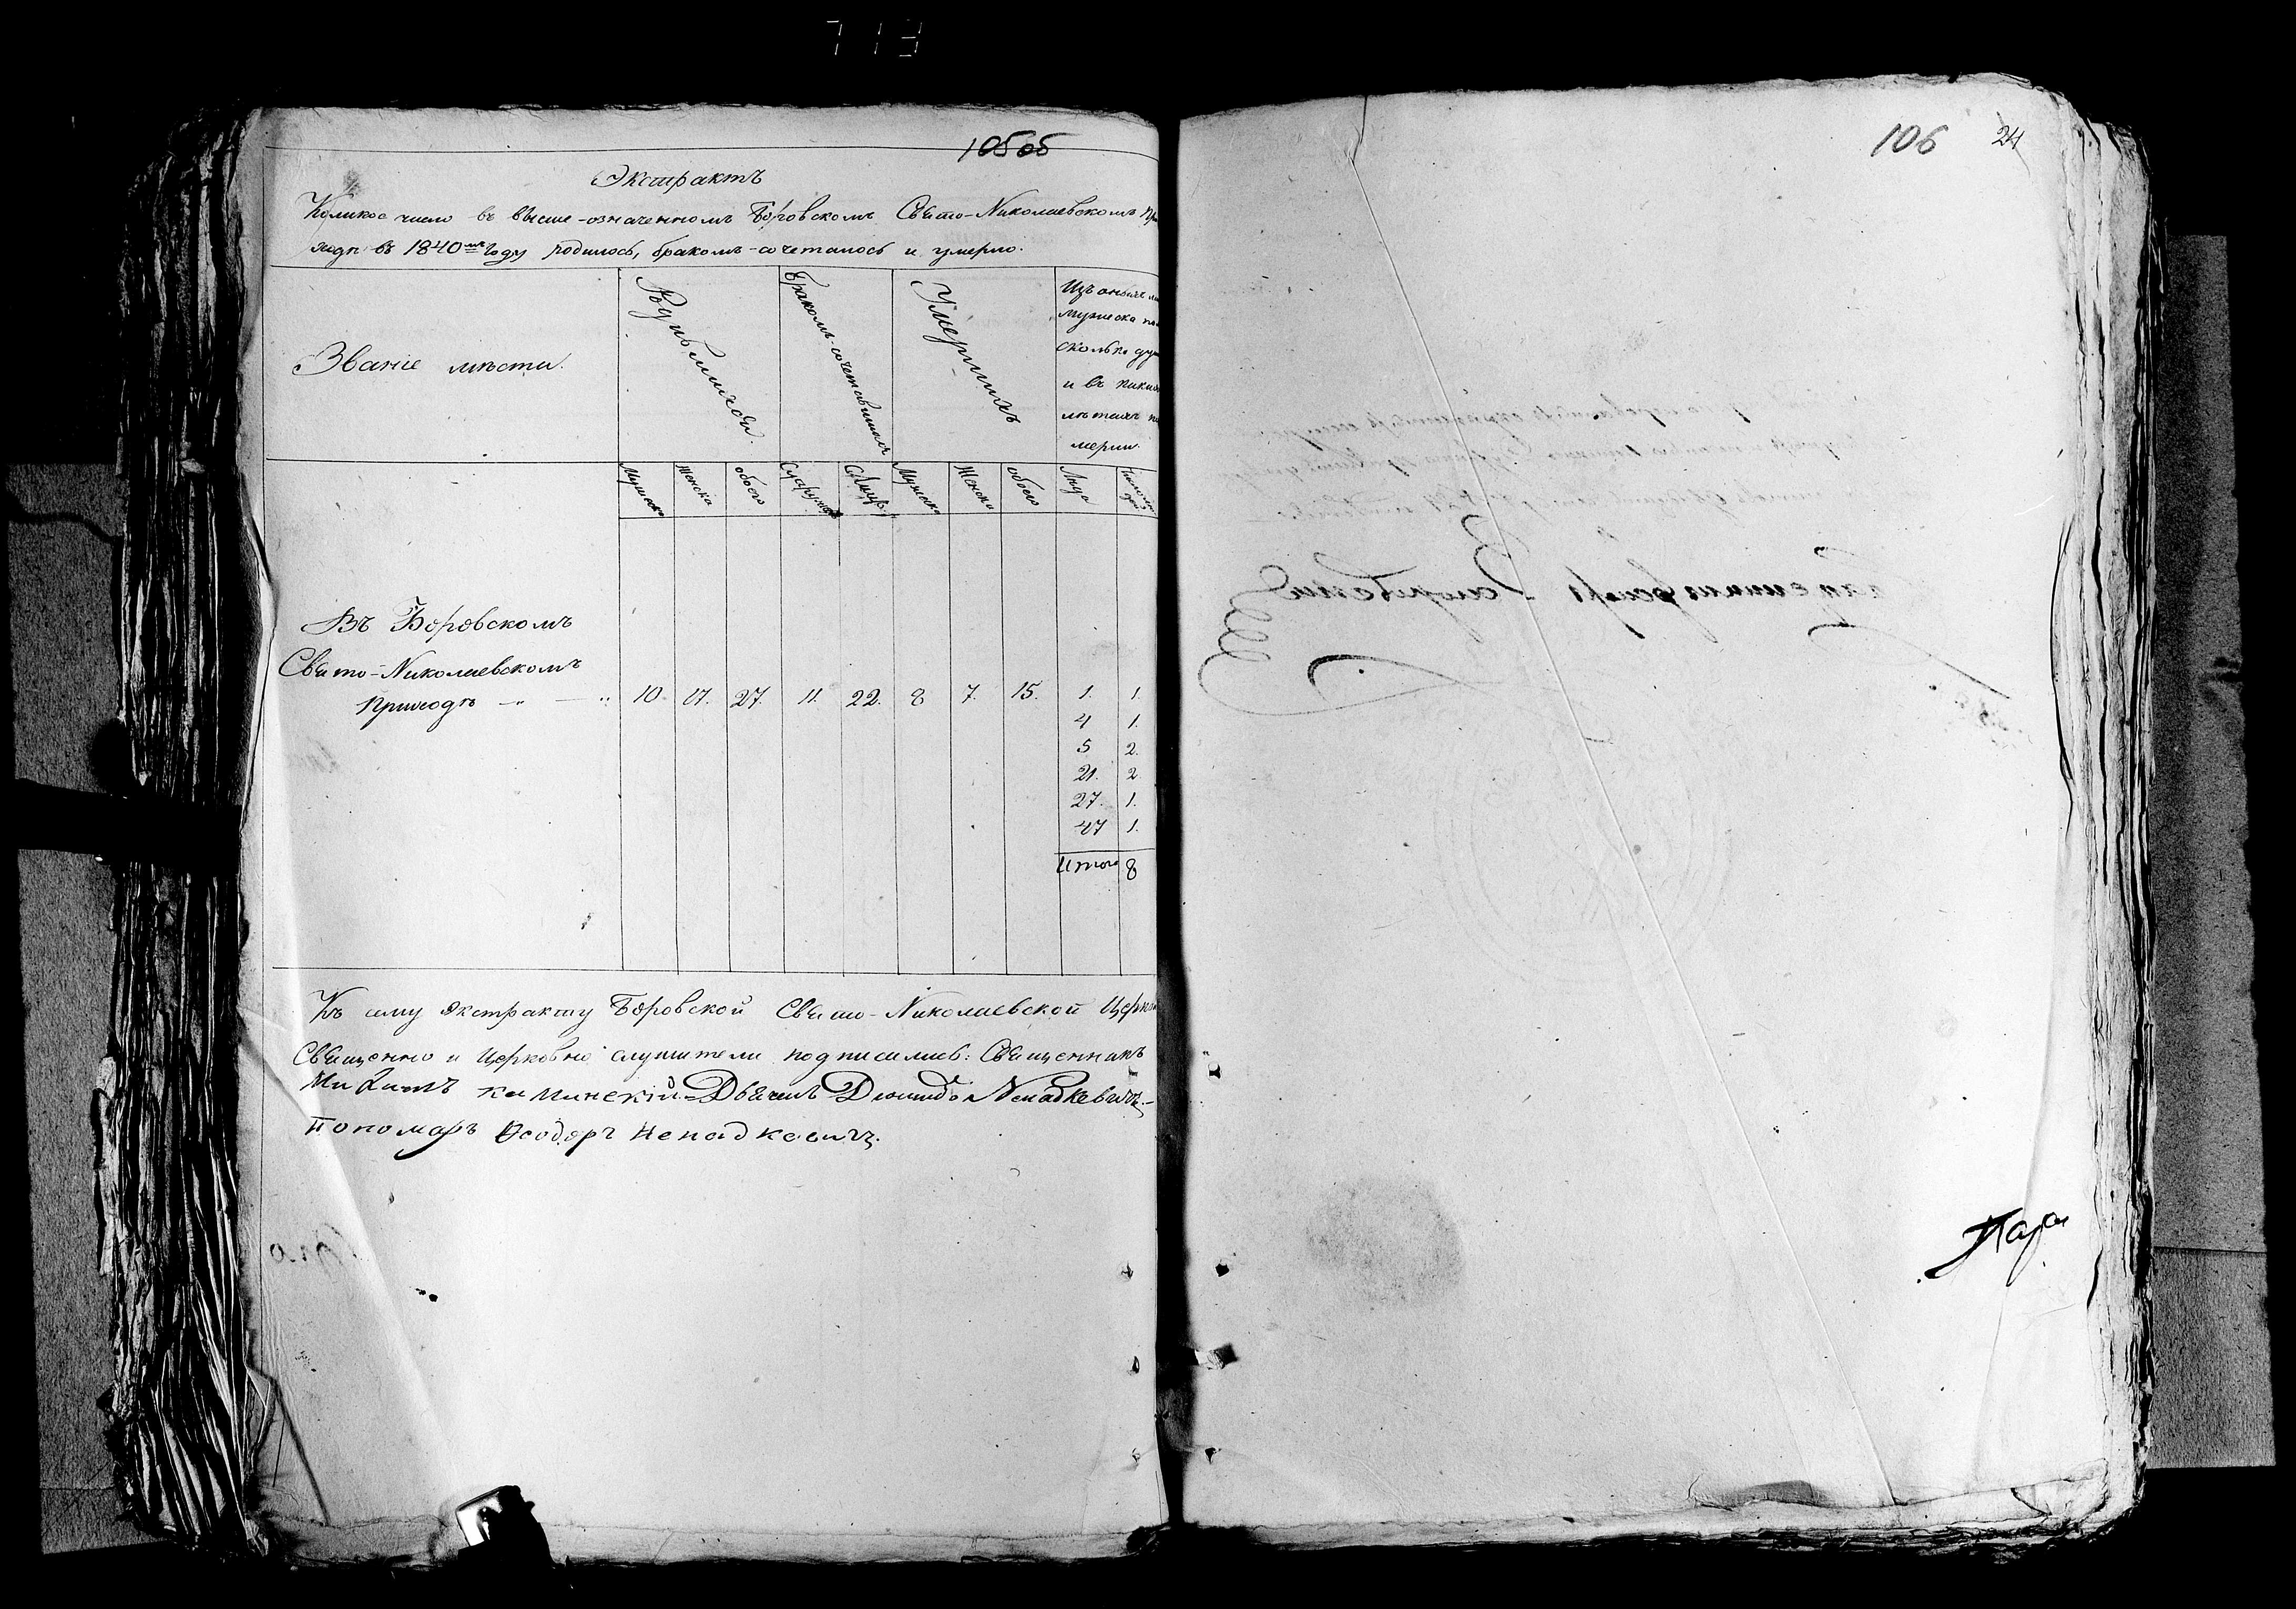 713
105об
Экстрактъ
Коликое число въ выше-означенномъ Боровскомъ Свято-Николаевскомъ При
ходѣ въ 1840мъ Году родилось, бракомъ-сочеталось и умерло.
Званіе мѣстъ.
Родившихся.
Бракомъ-сочетавшихся
Умершихъ
Изъ оныхъ
мужеска
сколько душ
и въ какихъ
лѣтахъ
мерли.
Мужеска
Женска
обоего
Супружествъ
Лицъ
Мужеска
Женска
обоего
Лѣта
Въ Боровскомъ
Свято-Николаевскомъ
Приходѣ 10. 17. 27. 11. 22. 8 7. 15. 1. 1.
4 1.
5 2.
21. 2
27. 1.
47 1.
Итого 8
Къ сему Экстракту Боровской Свято-Николаевской Церкви
Священно и Церковно служители подписались: Священникъ
Каминскій. Дьячекъ Ненадкевичъ.
Пономарь Ѳеодоръ Ненадкевичъ.
106 24